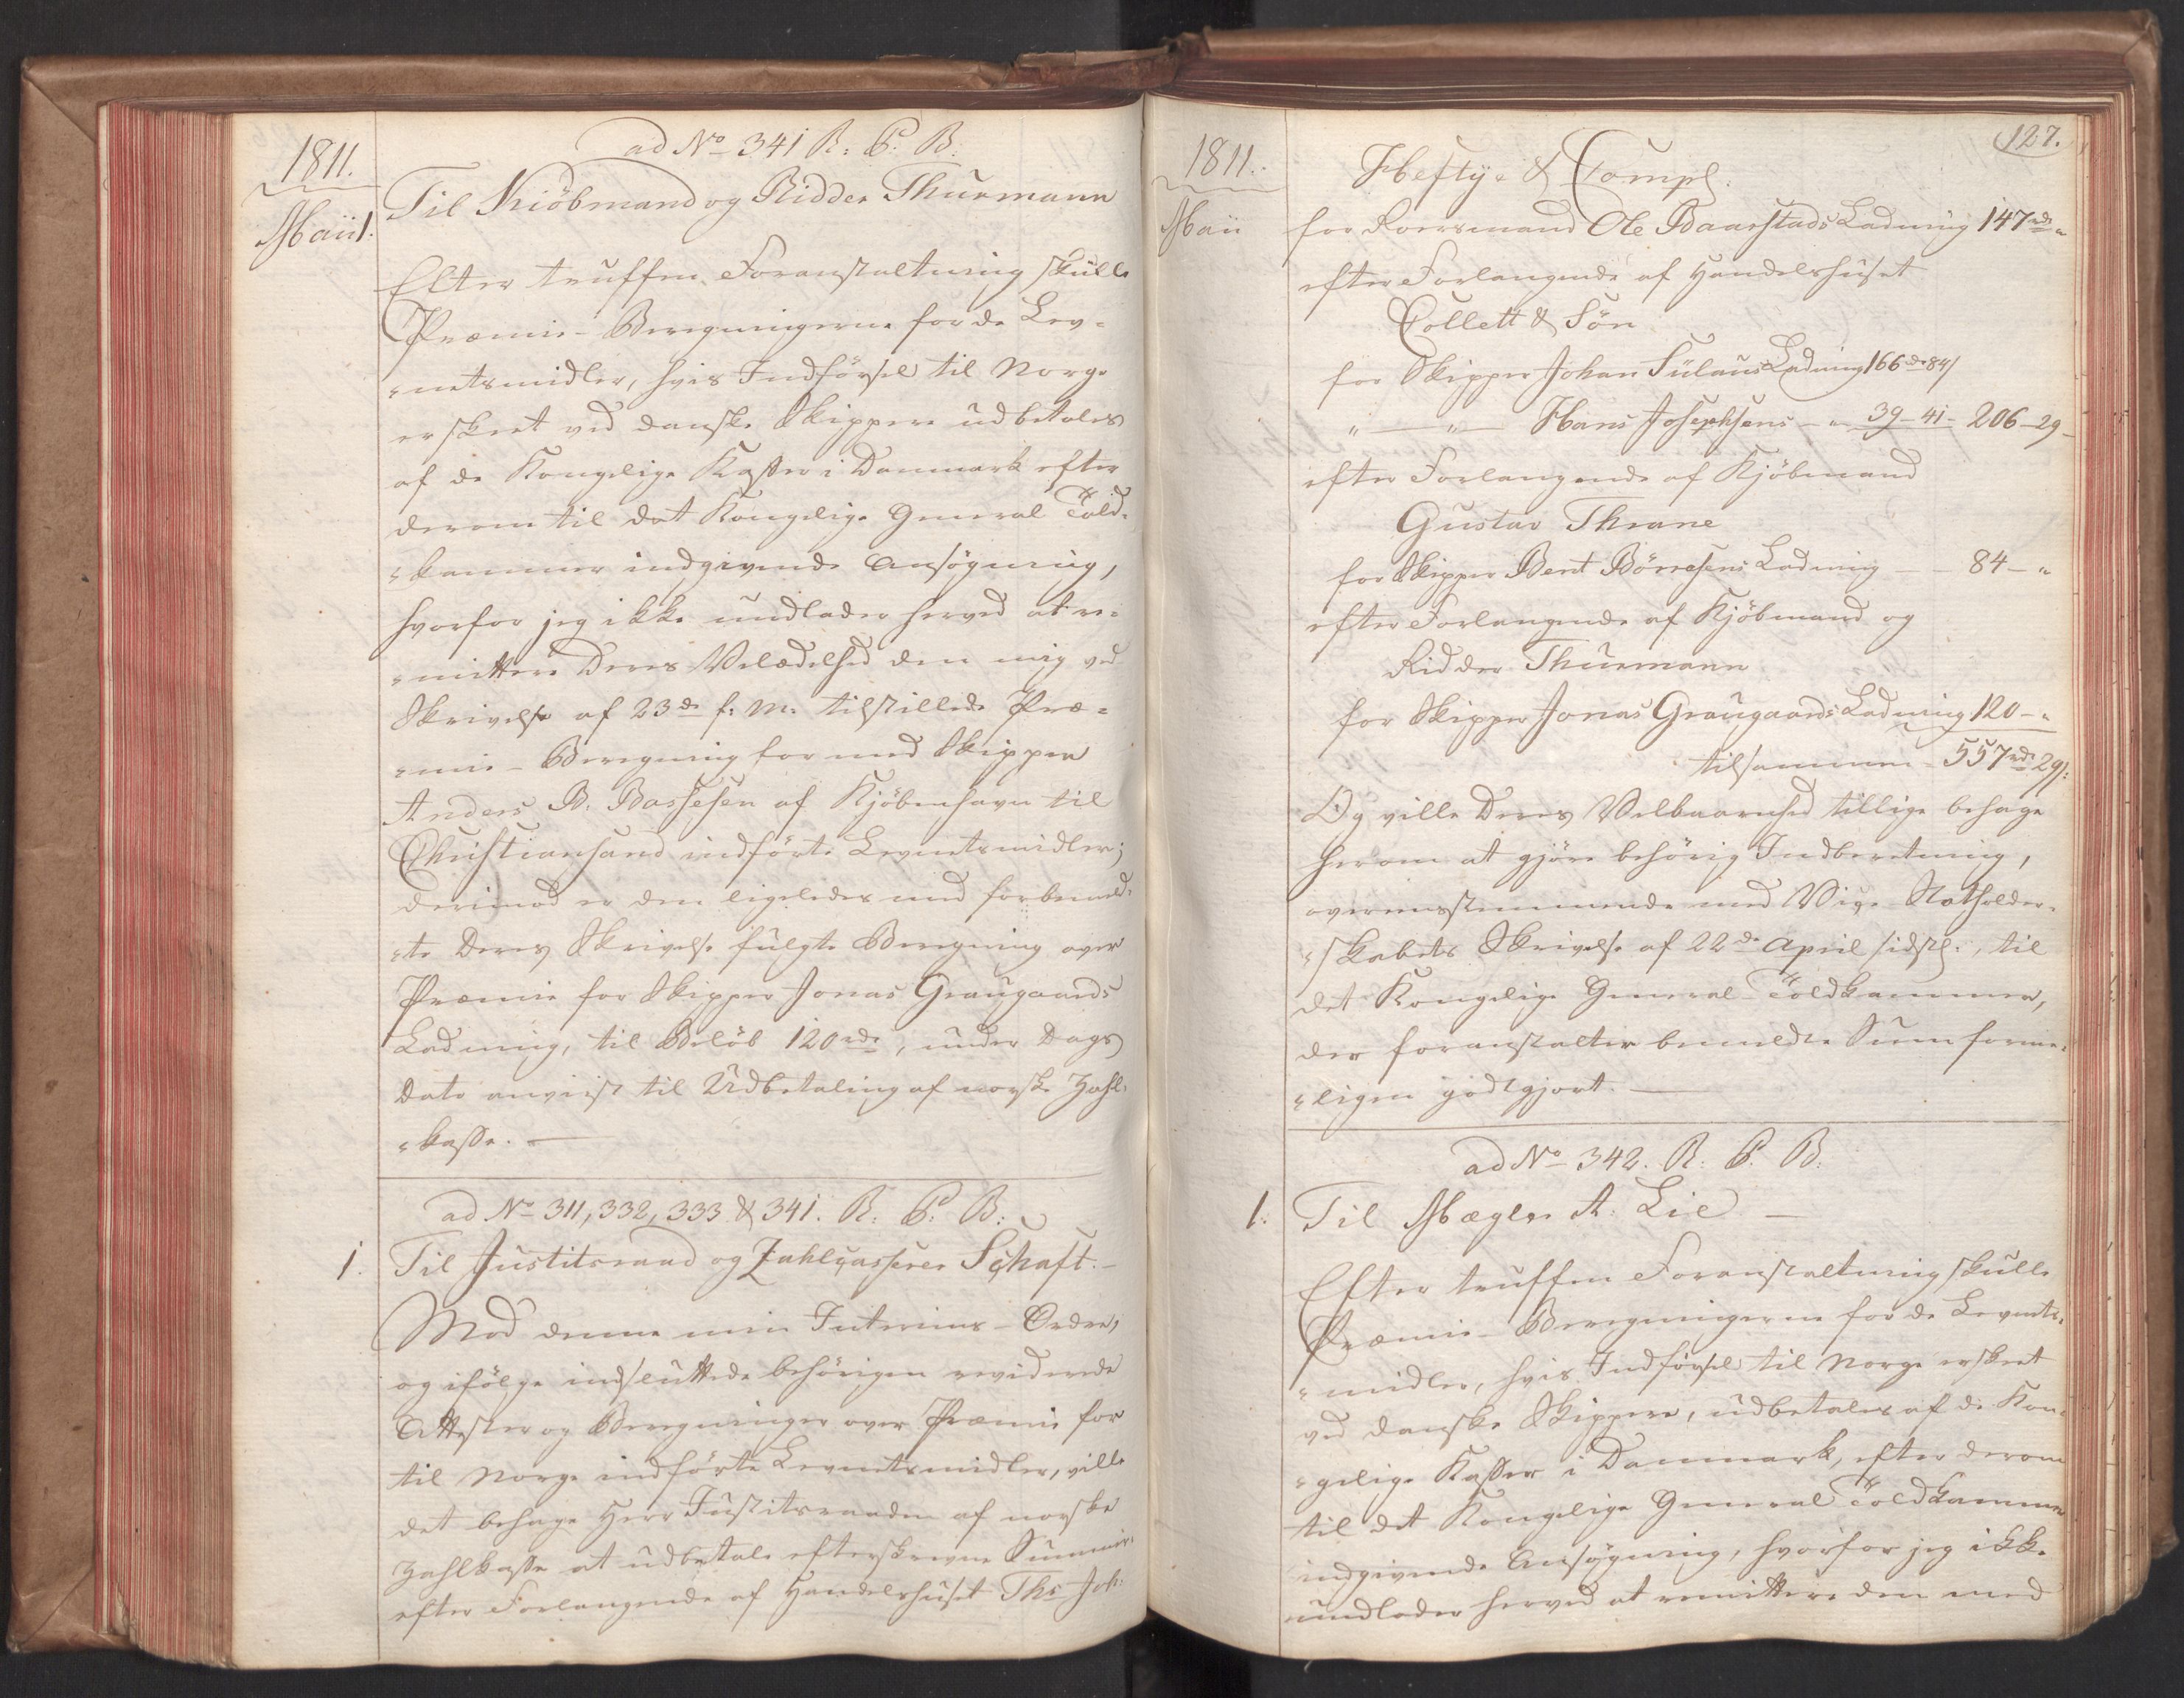 1811.
Maii 1.
ad No 341 R: C: B:
Til Kiöbmand og Ridder Thurmann
Efter truffen Foranstaltning skulle
Præmie-Beregningerne for de Lev-
-netsmidler, hvis Indförsel til Norge
er skeet ved danske Skippere udbetales
af de Kongelige Kasser i Danmark efter
derom til det Kongelige General Told-
-kammer indgivende Ansögning,
hvorfor jeg ikke undlader herved at re-
-mittere Deres Velædelhed den mig ved
Skrivelse af 23de f: M: tilstillede Præ-
-mie-Beregning for med Skipper
Anders B. Bassesen af Kjöbenhavn til
Christiansand indförte Levnetsmidler;
derimod er den ligeledes med forbemeld-
-te Deres Skrivelse fulgte Beregning over
Præmie for Skipper Jonas Graugaards
Ladning, til Belöb 120 rd, under Dags
Dato anviist til Udbetaling af norske Zahl-
-kasse. —
ad No 311, 332, 333 & 341. R: C: B:
1. Til Justitsraad og Zahlcasserer Schaft. —
Mod denne min Interims-Ordre,
og ifölge indsluttede behörigen reviderede
Attester og Beregninger over Præmie for
til Norge indförte Levnetsmidler, ville
det behage Herr Justitsraaden af norske
Zahlkasse at udbetale efterskrevne Summer:
efter Forlangende af Handelshuset Ths Joh:
1811.
Maii
127.
Heftye & Comp.
for Koersmand Ole Baarstads Ladning 147 rd "
efter Forlangende af Handelshuset
Collett & Sön
for Skipper Johan Fülaus Ladning 166 rd 84 s
" — " — Hans Josephsens — " 39 - 41 - 206 - 29 -
efter Forlangende af Kjöbmand
Gustav Thrane
for Skipper Bent Börresens Ladning — 84 - "
efter Forlangende af Kjöbmand og
Ridder Thurmann
for Skipper Jonas Graugaards Ladning 120 - "
tilsammen - 557 rd 29 s:
Og ville Deres Velbaarenhed tillige behage
herom at gjöre behörig Indberetning,
overensstemmende med Vice Statholder-
-skabets Skrivelse af 22de April sidstl:, til
det Kongelige General-Toldkammer,
der foranstalter bemeldte Sum forme-
-ligen godtgjort. —
ad No 342. R: C: B:
1. Til Mægler A: Lie —
Efter truffen Foranstaltning skulle
Præmie-Beregningerne for de Levnets-
-midler, hvis Indförsel til Norge er skeet
ved danske Skippere, udbetales af de Kon-
-gelige Kasser i Danmark, efter derom
til det Kongelige General Toldkammer
indgivende Ansögning, hvorfor jeg ikke
undlader herved at remittere den med